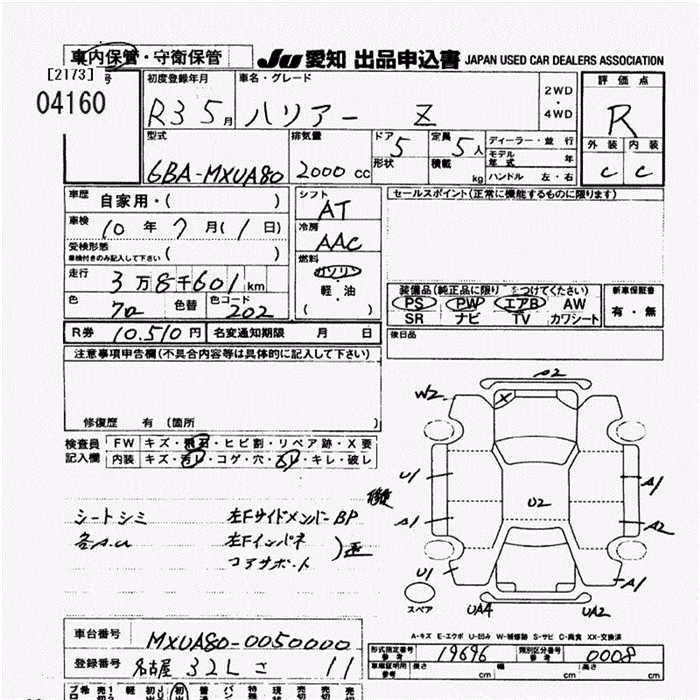 車内保管・守衛保管 JU 愛知 出品申込書 JAPAN USED CAR DEALERS ASSOCIATION
[2173]
04160
初度登録年月 車名・グレード 2WD ・ 4WD 評価点
R3 5月 ハリアー Z R
型式 排気量 ドア 5 定員 5人 ディーラー・並行 外装 内装
形状 積載 kg モデル年式 年
6BA-MXUA80 2000cc ハンドル 左・右 C C
車歴 自家用・( ) シフト AT セールスポイント(正常に機能するものに限ります)
車検 10年 7月(1日) 冷房 AAC
受検形態 ( )
車検付きのみ記入して下さい
燃料 ガソリン
軽・油
( )
走行 3万8千601km
色 色替 色コード 202
R券 10.510円 名変通知期限 月 日
装備品(純正品に限り をつけてください) 新車保証書
PS PW エアB AW 有・無
SR ナビ TV カワシート
後日品
注意事項申告欄(不具合内容等は具体的に記入して下さい)
修復歴 有 (箇所 )
検査員 FW キズ・飛石・ヒビ割・リペア跡・X要
記入欄 内装 キズ・汚レ・コゲ・穴・スレ・キレ・破レ
シートシミ 左FサイドメンバーBP
各A.U 左Fインパネ
コアサポート
A2
W2 X
U1 A1
U2
A1 A2
U1 A1
スペア UA4 UA2
A-キズ E-エクボ U-凹み W-補修跡 S-サビ C-腐食 XX-交換済
車台番号 MXUA80-0050000
登録番号 名古屋 32L さ 11
形式指定番号 参考 19696 類別区分番号 参考 0008
車庫証明用 参考 長さ cm 幅 cm 高さ cm